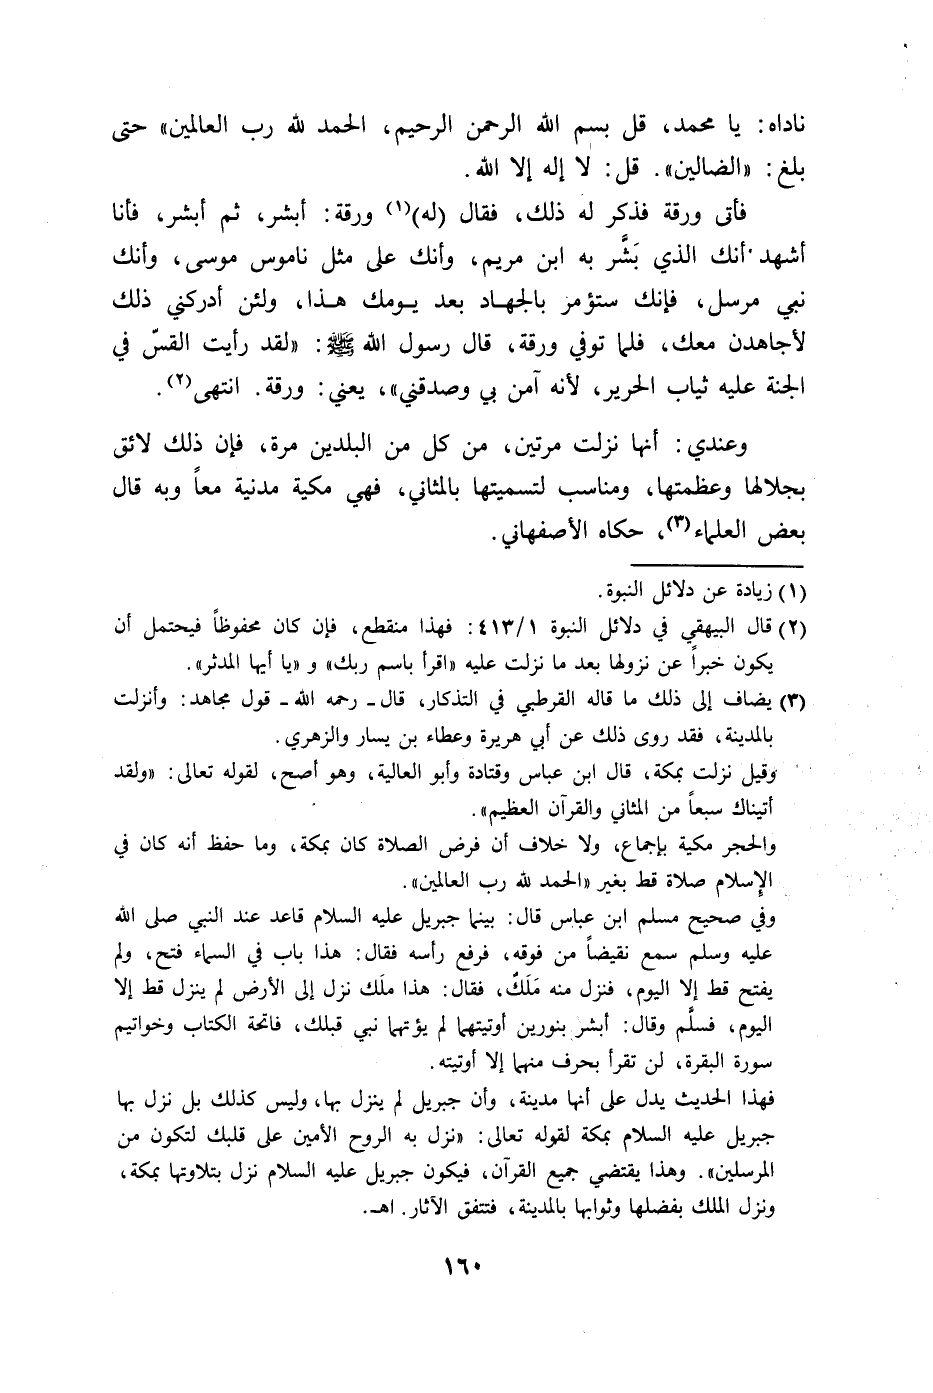 ناداه: يا محمد، قل بسم الله الرحمن الرحيم، الحمد لله رب العالمين» حتى
بلغ: «الضالين». قل: لا إله إلا الله.
فأتى ورقة فذكر له ذلك، فقال (له)(١) ورقة: أبشر، ثم أبشر، فأنا
أشهد أنك الذي بَشَّر به ابن مريم، وأنك على مثل ناموس موسى، وأنك
نبي مرسل، فإنك ستؤمر بالجهاد بعد يومك هذا، ولئن أدركني ذلك
لأجاهدن معك، فلما توفي ورقة، قال رسول الله ﷺ: «لقد رأيت القسّ في
الجنة عليه ثياب الحرير، لأنه آمن بي وصدقني»، يعني: ورقة. انتهى(٢).
وعندي: أنها نزلت مرتين، من كل من البلدين مرة، فإن ذلك لائق
بجلالها وعظمتها، ومناسب لتسميتها بالمثاني، فهي مكية مدنية معاً وبه قال
بعض العلماء(٣)، حكاه الأصفهاني.
(١) زيادة عن دلائل النبوة.
(٢) قال البيهقي في دلائل النبوة ٤١٣/١: فهذا منقطع، فإن كان محفوظاً فيحتمل أن
يكون خبراً عن نزولها بعد ما نزلت عليه «اقرأ باسم ربك» و «يا أيها المدثر».
(٣) يضاف إلى ذلك ما قاله القرطبي في التذكار، قال ـ رحمه الله ـ قول مجاهد: وأنزلت
بالمدينة، فقد روى ذلك عن أبي هريرة وعطاء بن يسار والزهري.
وقيل نزلت بمكة، قال ابن عباس وقتادة وأبو العالية، وهو أصح، لقوله تعالى: «ولقد
أتيناك سبعاً من المثاني والقرآن العظيم».
والحجر مكية بإجماع، ولا خلاف أن فرض الصلاة كان بمكة، وما حفظ أنه كان في
الإسلام صلاة قط بغير «الحمد لله رب العالمين».
وفي صحيح مسلم ابن عباس قال: بينما جبريل عليه السلام قاعد عند النبي صلى الله
عليه وسلم سمع نقيضاً من فوقه، فرفع رأسه فقال: هذا باب في السماء فتح، ولم
يفتح قط إلا اليوم، فنزل منه مَلَكٌ، فقال: هذا ملَك نزل إلى الأرض لم ينزل قط إلا
اليوم، فسلَّم وقال: أبشر بنورين أوتيتهما لم يؤتهما نبي قبلك، فاتحة الكتاب وخواتيم
سورة البقرة، لن تقرأ بحرف منهما إلا أوتيته.
فهذا الحديث يدل على أنها مدينة، وأن جبريل لم ينزل بها، وليس كذلك بل نزل بها
جبريل عليه السلام بمكة لقوله تعالى: «نزل به الروح الأمين على قلبك لتكون من
المرسلين». وهذا يقتضي جميع القرآن، فيكون جبريل عليه السلام نزل بتلاوتها بمكة،
ونزل الملك بفضلها وثوابها بالمدينة، فتتفق الآثار. اهـ.
١٦٠